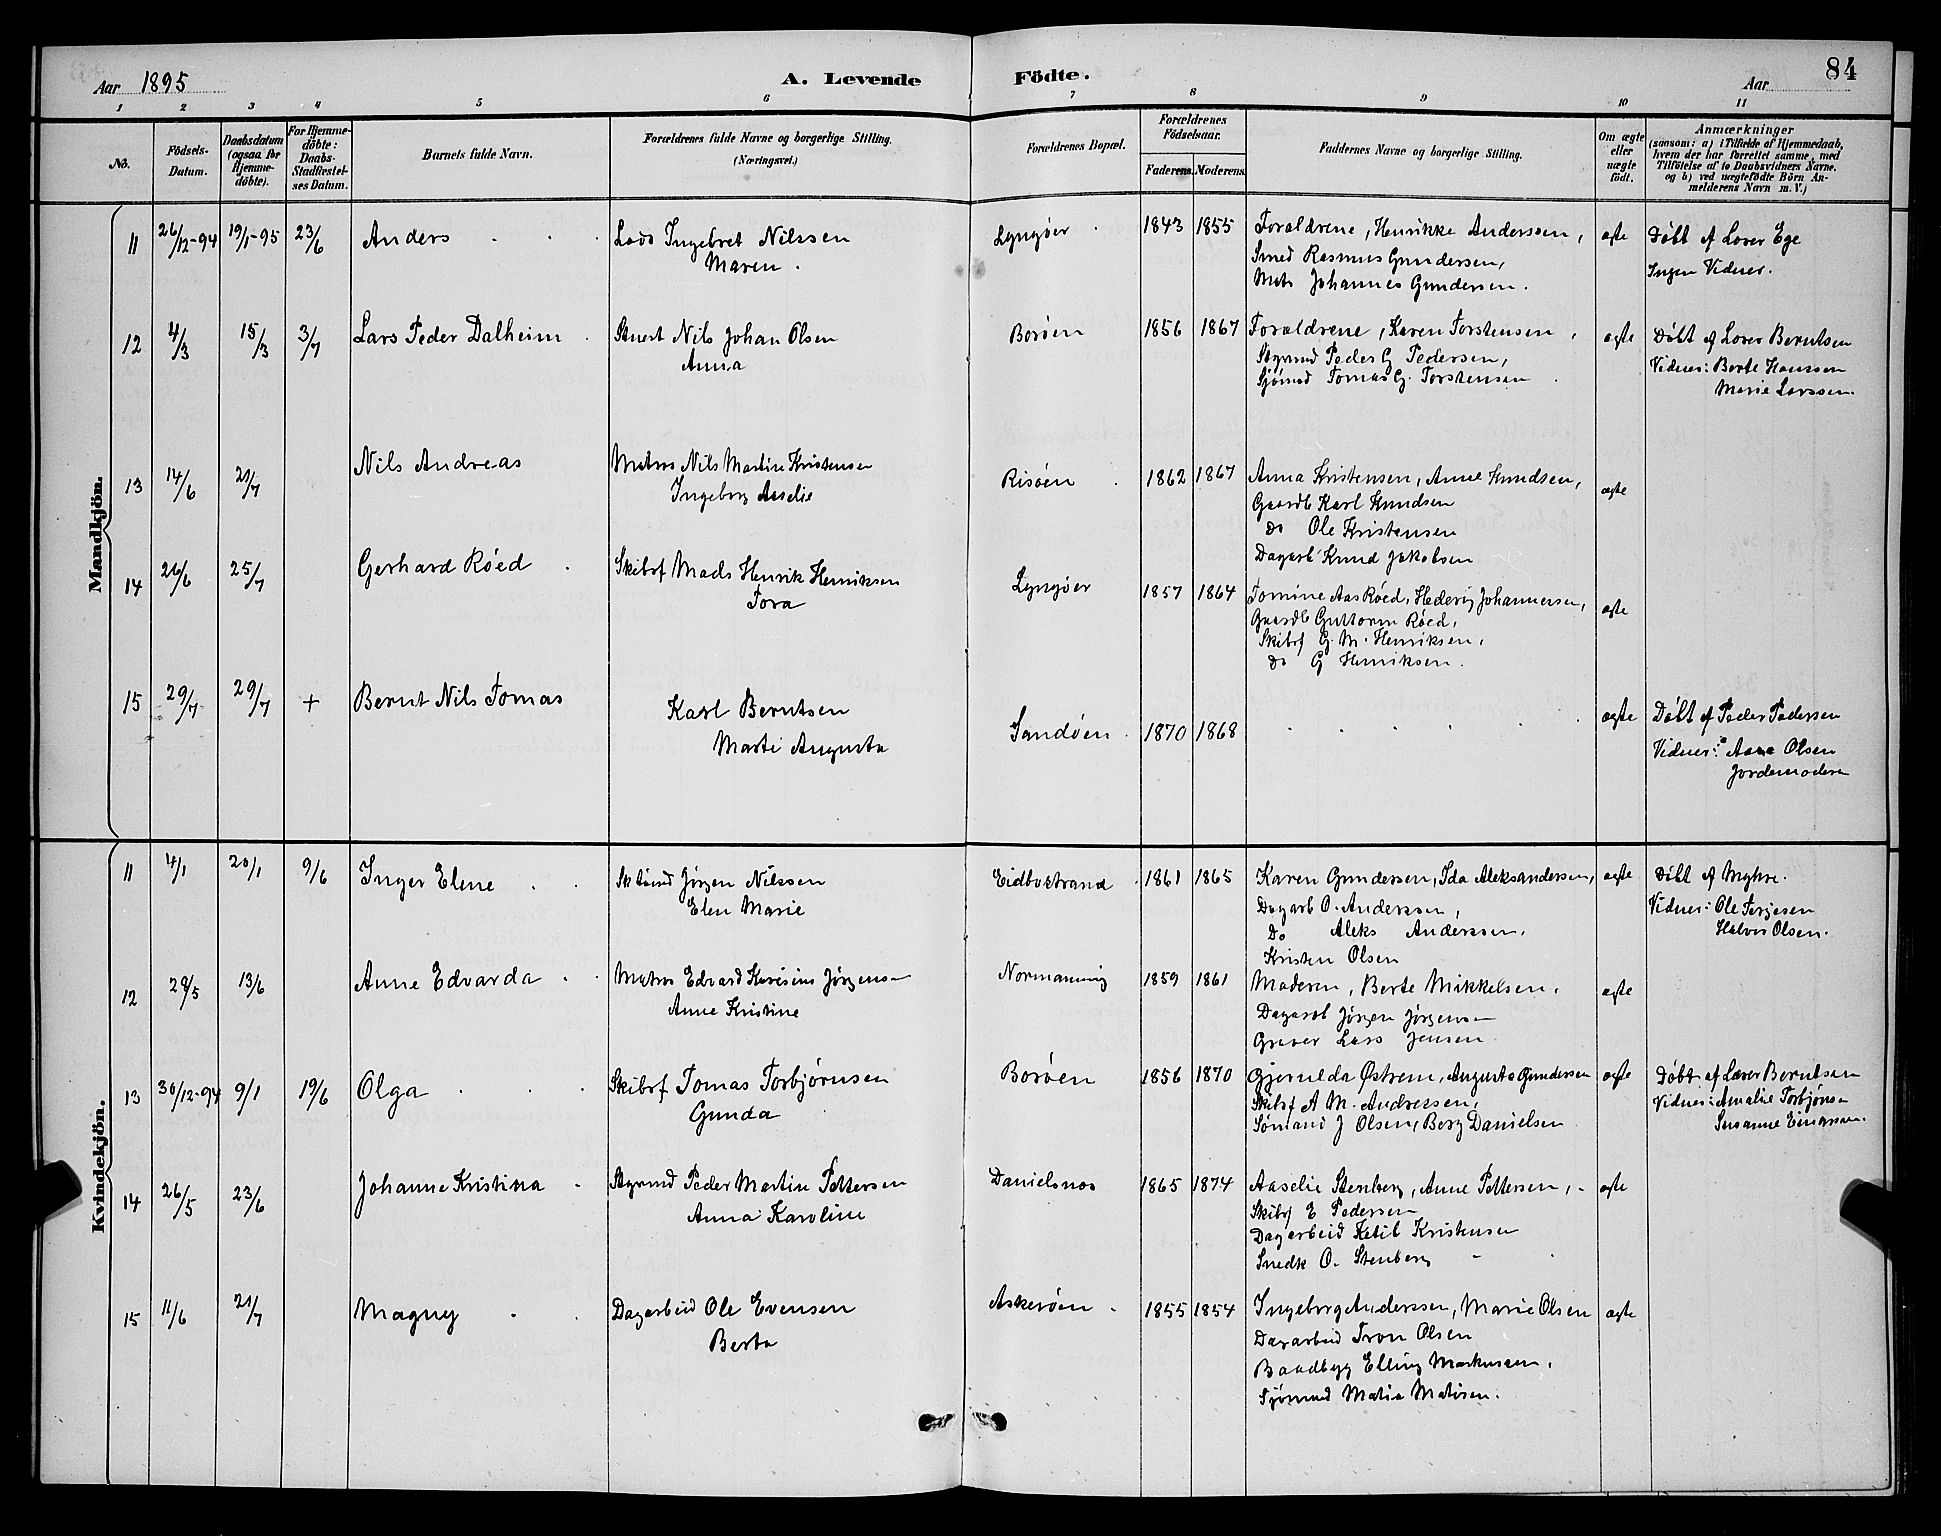 Aar 1895
A. Levende Födte.
Aar
84
1 2 3 4 5 6 7 8 9 10 11
No.
Födsels-Datum.
Daabsdatum (ogsaa for Hjemme-döbte).
For Hjemme-döbte: Daabs-Stadfæstel-ses Datum.
Barnets fulde Navn.
Forældrenes fulde Navne og borgerlige Stilling.
(Næringsvei.)
Forældrenes Bopæl.
Forældrenes Födselsaar.
Faderens. Moderens.
Faddernes Navne og borgerlige Stilling.
Om ægte eller uægte födt.
Anmærkninger
(saasom: a) i Tilfælde af Hjemmedaab, hvem der har forrettet samme, med Tilföielse af to Daabsvidners Navne, og b) ved uægtefödte Börn An-melderens Navn m. V.)
Mandkjön.
11 26/12-94 19/1-95 23/6 Anders Lods Ingebret Nilssen Lyngöer 1843 1855 Forældrene, Henrikke Anderssen, ægte Döbt af Lærer Ege
Maren. Smed Rasmus Gundersen, Ingen Vidner.
Mats Johannes Gundersen.
12 4/3 15/3 3/7 Lars Peder Dalheim Stuert Nils Johan Olsen Boröen 1856 1867 Forældrene, Karen Torstensen, ægte Döbt af Lærer Berntsen
Anna Styrmd Peder G Pedersen, Vidner: Berte Hanssen
Sjömnd Tomas G. Torstensen Marie Larssen.
13 14/6 21/7 Nils Andreas Matros Nils Martin Kristensen Risöen 1862 1867 Anna Kristensen, Anne Knudsen, ægte
Ingeborg Aselie Gaardb Karl Knudsen
Do Ole Kristensen
Dagarb Knud Jakobsen
14 26/6 25/7 Gerhard Röed Skibsf Mads Henrik Henriksen Lyngöer 1857 1864 Tomine Aas Röed, Hedevig Johannessen, ægte
Tora Gaardb Guttorm Röed,
Skibsf G. M. Henriksen,
Do G Henriksen.
15 29/7 29/7 + Bernt Nils Tomas Karl Berntsen Sandöen 1870 1868 ægte Döbt af Peder Pedersen
Marti Augusta Vidner: Aase Olsen
Jordemoderen
Kvindekjön.
11 4/1 20/1 9/6 Inger Elene Jörgen Nilssen Eidbostrand 1861 1865 Karen Gundersen, Ida Aleksandersen, ægte Döbt af Myhre.
Elen Marie Dagarb O. Anderssen, Vidner: Ole Terjesen
Do Aleks Anderssen. Halvor Olsen.
Kristen Olsen
12 28/5 13/6 Anne Edvarda Matros Edvard Jörgensen 1859 1861 Moderen, Berte Mikkelsen. ægte
Anne Kristine Dagarb Jörgen Jörgensen
Graver Lars Jensen
13 30/12-94 9/1 19/6 Olga Skibsf Tomas Torbjörnsen Boröen 1856 1870 Gjerulda Östrem, Augusta Gundersen ægte Döbt af Lærer Berntsen
Gunda Skibsf A M. Andressen, Vidner: Amalie Torbjörnsen
Sömand J Olsen, Berg Danielsen
14 26/5 23/6 Johanne Kristina Styrmd Peder Martin Pettersen Danielsnes 1865 1874 Aaselie Stenberg, Anne Pettersen, ægte
Anna Karoline Skibsf E Pedersen
Dagarbeid Ketil Kristensen
Snedk O. Stenberg
15 11/6 21/7 Magny Dagarbeid Ole Evensen Askeröen 1855 1854 Ingeborg Anderssen, Marie Olsen ægte
Berta Dagarbeid Tron Olsen
Baadbyg Elling Markussen,
Sjömnd Matis Matisen.